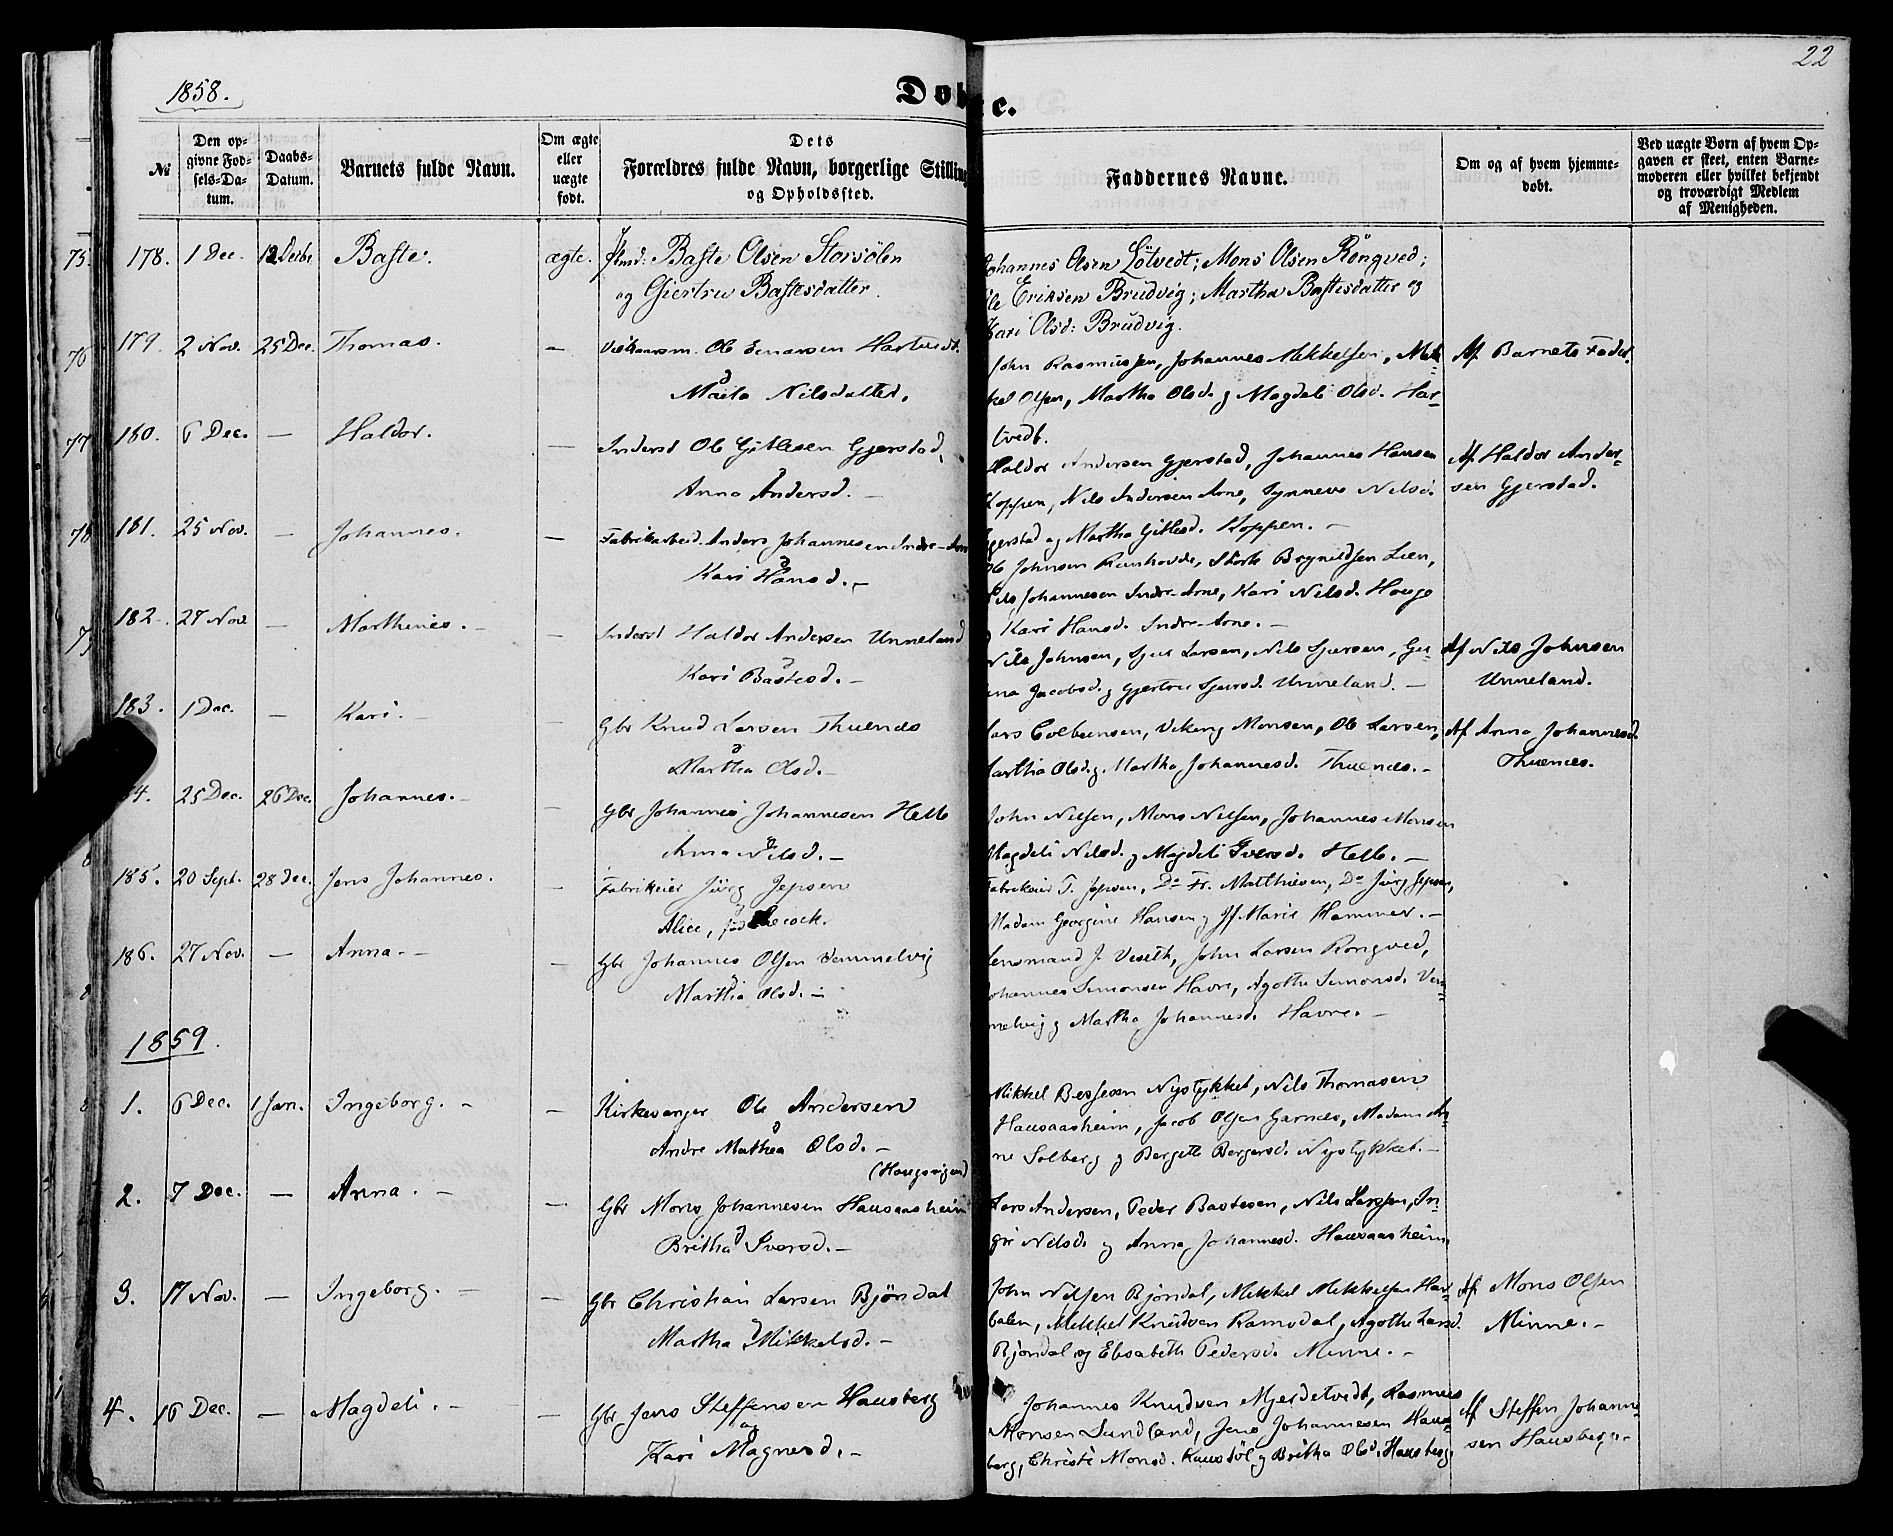 22
1858.
Døbte.
№
Den opgivne Fødsels-Datum.
Daabs-Datum.
Barnets fulde Navn.
Om ægte eller uægte født.
Dets Forældres fulde Navn, borgerlige Stilling og Opholdssted.
Faddernes Navne.
Om og af hvem hjemmedøbt.
Ved uægte Børn af hvem Opgaven er skeet, enten Barnemoderen eller hvilket bekjendt og troværdigt Medlem af Menigheden.
178. 1 Dec. 12 Decbr. Baste. ægte. Baste Olsen Storsölen
og Giertru Bastesdatter.
Johannes Olsen Lötvedt; Mons Olsen Röngved;
Ole Eriksen Brudvig; Martha Bastesdatter og
Kari Olsd: Brudvig.
179. 2 Nov. 25 Dec. Thomas. — Ole Einarsen Hartvedt.
Nilsdatter.
John Rasmussen, Johannes Mikkelsen, Mik-
kel Olsen, Martha Olsd. og Magdeli Olsd. Har-
tvedt.
Af Barnets Fader.
180. 6 Dec. — Haldor. — Inderst Ole Gitlesen Gjerstad,
Anna Andersd. —
Haldor Andersen Gjerstad, Johannes Hansen
Koppen, Nils Andersen Arne, Synneve Nilsd.
Gjerstad og Martha Gitlesd. Koppen. —
Af Haldor Ander-
sen Gjerstad.
181. 25 Nov. — Johannes. — Fabrikarbeid. Anders Johannesen Indre-Arne
Kari Hansd. —
Ole Johnsen Runhovde, Störk Brynildsen Lien,
Nils Johannesen Indre-Arne, Kari Nilsd. Hauge
og Kari Hansd. Indre-Arne. —
182. 27 Nov. — Marthines. — Inderst Haldor Andersen Unneland
Kari Bastesd. —
Nils Johnsen, Sjur Larsen, Nils Sjursen,
Jacobsd. og Gjertru Sjursd. Unneland. —
Af Nils Johnsen
Unneland.
183. 1 Dec. — Kari. — Gbr Knud Larsen Thuenes
og
Martha Olsd. —
Lars Colbensen, Viking Monsen, Ole Larsen,
Martha Olsd. og Martha Johannesd. Thuenes. —
Af Anna Johannesd.
Thuenes.
84. 25 Dec. 26 Dec. Johannes. — Gbr Johannes Johannesen Helle
Anna Nilsd. —
John Nilsen, Mons Nilsen, Johannes Monsen
Magdeli Nilsd. og Magdeli Iversd. Helle. —
185. 20 Sept. 28 Dec. Jens Johannes. — Fabrikeier Jürg Jepsen
Alice, född
Fabrikeier P. Jepsen, Do Fr. Matthiesen, Do Jürg Jepsen,
Madam Georgine Hansen og Jf Marie Hammer. —
186. 27 Nov. — Anna. — Gbr Johannes Olsen Vemmelvig
Martha Olsd. —
Lensmand J. Veseth, John Larsen Rongved,
Johannes Simonsen Havre, Agothe Simonsd. Vem-
melvig og Martha Johannesd. Havre. —
1859.
1. 6 Dec. 1 Jan. Ingeborg. — Kirkesanger Ole Andersen
Andre Mathea Olsd. —
Mikkel Bessesen Nystykket, Nils Thomasen
Hausaasheim, Jacob Olsen Garnæs, Madam An-
ne Solberg og Bergette Bergersd. Nystykket. —
2. 7 Dec. — Anna. — (Haugsvigen)
Gbr Mons Johannesen Hausaasheim
Britha Iversd. —
Lars Andersen, Peder Bastesen, Nils Larsen, In-
gri Nilsd. og Anna Johannesd. Hausaasheim
3. 17 Nov. — Ingeborg. — Gbr Christian Larsen Bjöndal
Martha Mikkelsd. —
John Nilsen Bjöndal, Mikkel Mikkelsen Har-
balen, Mikkel Knudsen Ramsdal, Agothe Larsd.
Bjöndal og Elisabeth Pedersd. Minne. —
Af Mons Olsen
Minne. —
4. 16 Dec. — Magdeli. — Gbr Jens Steffensen Hausberg
og
Kari Magnesd. —
Johannes Knudsen Mjeldetvedt, Rasmus
Monsen Sundland, Jens Johannesen Haus-
berg, Christi Monsd. Rausdöl og Britha Olsd. Hausberg
Af Steffen Johanne-
sen Hausberg. —
75.
76
77
78